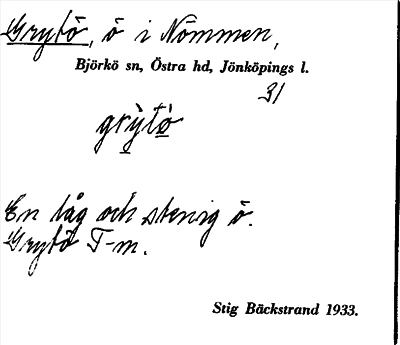 Grytö, ö i Nömmen,
Björkö sn, Östra hd, Jönköpings l.
31
grỳtö̀
En låg och stenig ö.
Grytö T-m.
Stig Bäckstrand 1933.